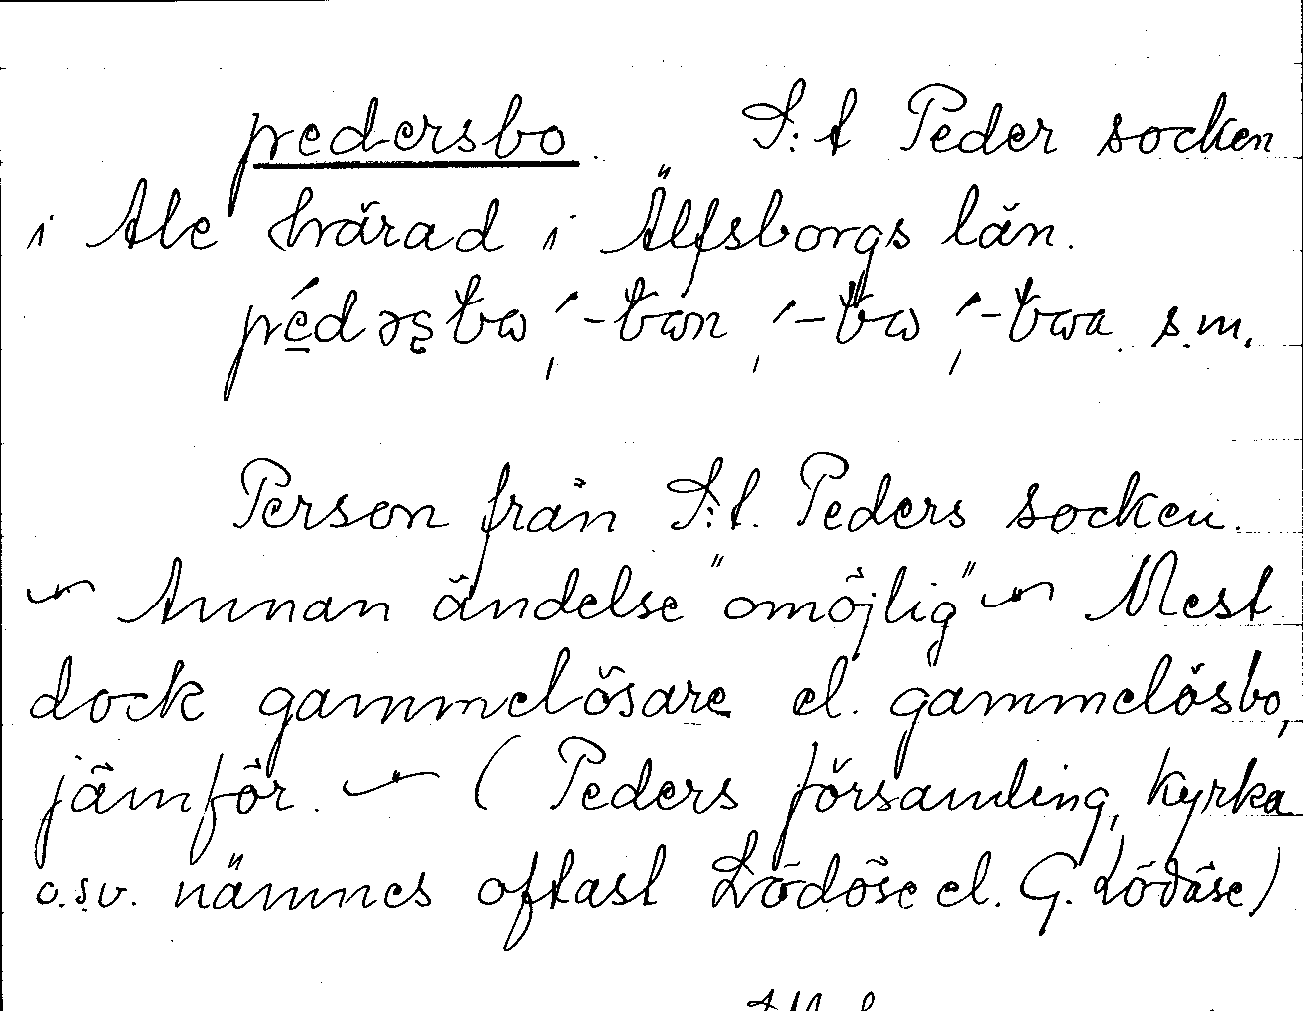 pedersbo. S:t Peder socken
i Ale härad i Älfsborgs län.
s.m.
Person från S:t. Peders socken.
~ Annan ändelse "omöjlig" ~ Mest
dock gammelösare el. gammelösbo,
jämför. ~ (Peders församling, kyrka
o.s.v. nämnes oftast Lödöse el. G. Lödöse)